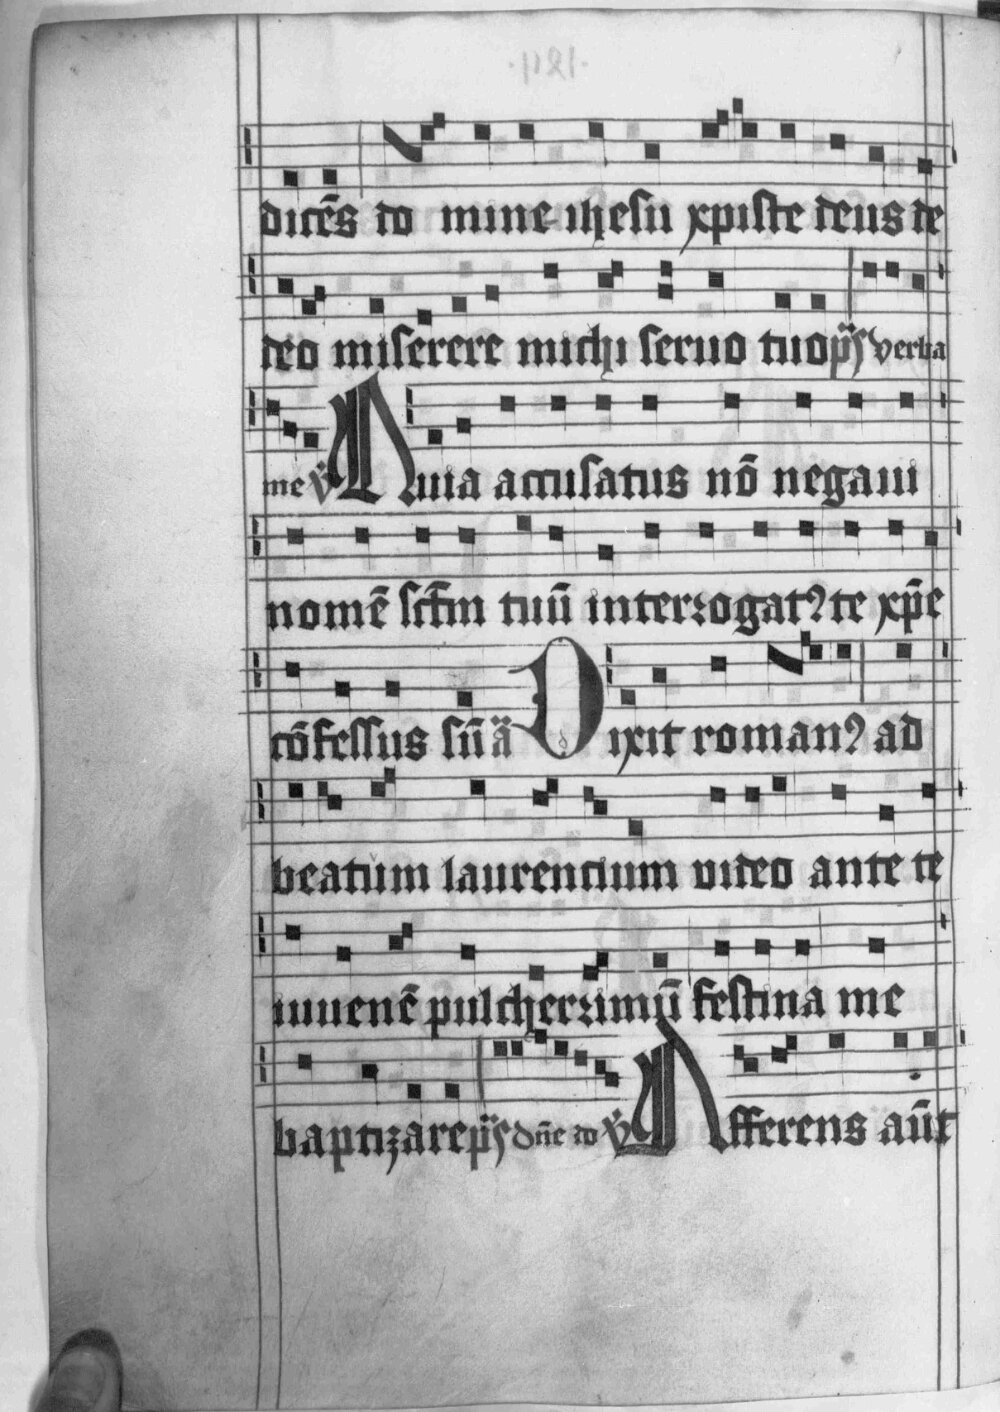 dicēs do mine ihesu xpiste deus de
deo miserere michi seruo tuo p̄s verba
me v̄ Quia accusatus nō negaui
nomē sctm̄ tuū interrogat9 te xp̄e
cōfessus sū a Dixit roman9 ad
beatum laurencium video ante te
iuuenē pulcherrimū festina me
baptizare p̄s dn̄e do v̄ Afferens aūt